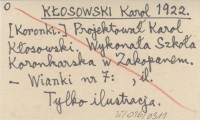 O
KŁOSOWSKI Karol 1922.
[Koronki.] Projektował Karol
Kłosowski. Wykonała Szkoła
Koronkarska w Zakopanem.
– Wianki nr 7: , il.
Tylko ilustracja.